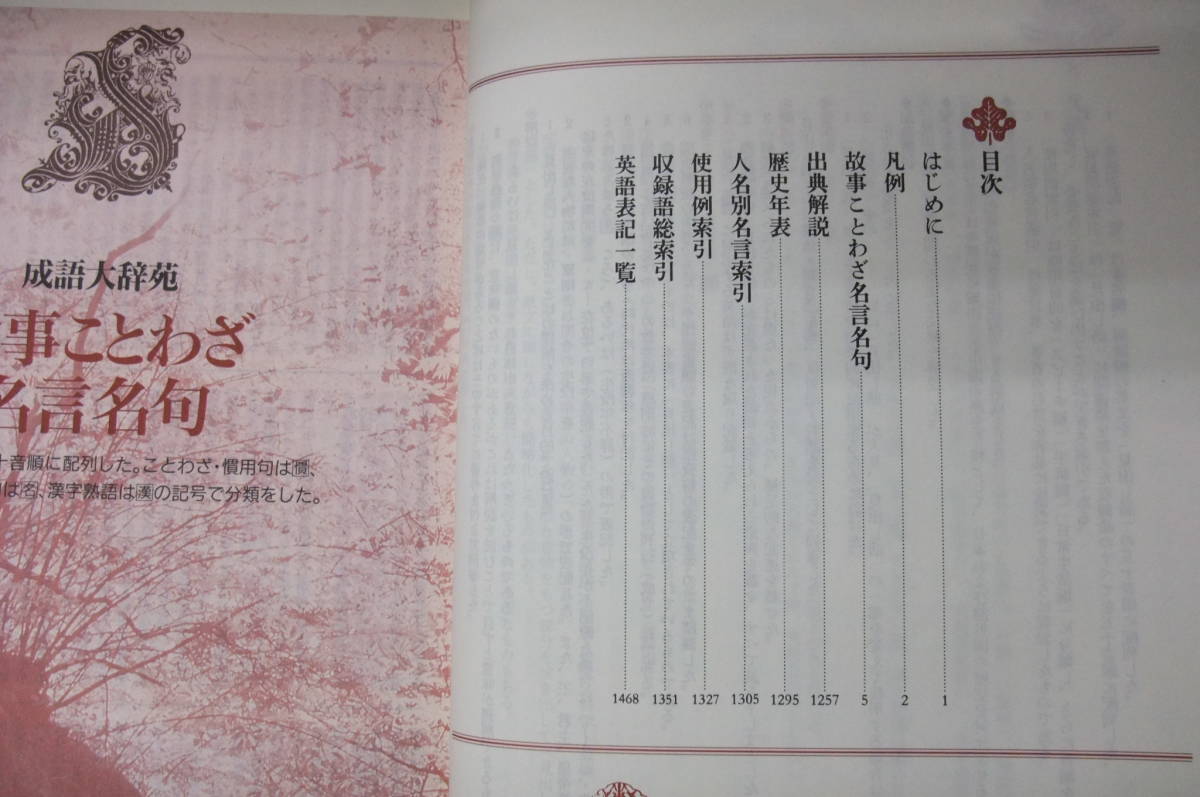 成語大辞苑
事ことわざ
名言名句
十音順に配列した。ことわざ・慣用句は慣、
は名、漢字熟語は漢の記号で分類をした。
目次
はじめに 1
凡例 2
故事ことわざ名言名句 5
出典解説 1257
歴史年表 1295
人名別名言索引 1305
使用例索引 1327
収録語総索引 1351
英語表記一覧 1468